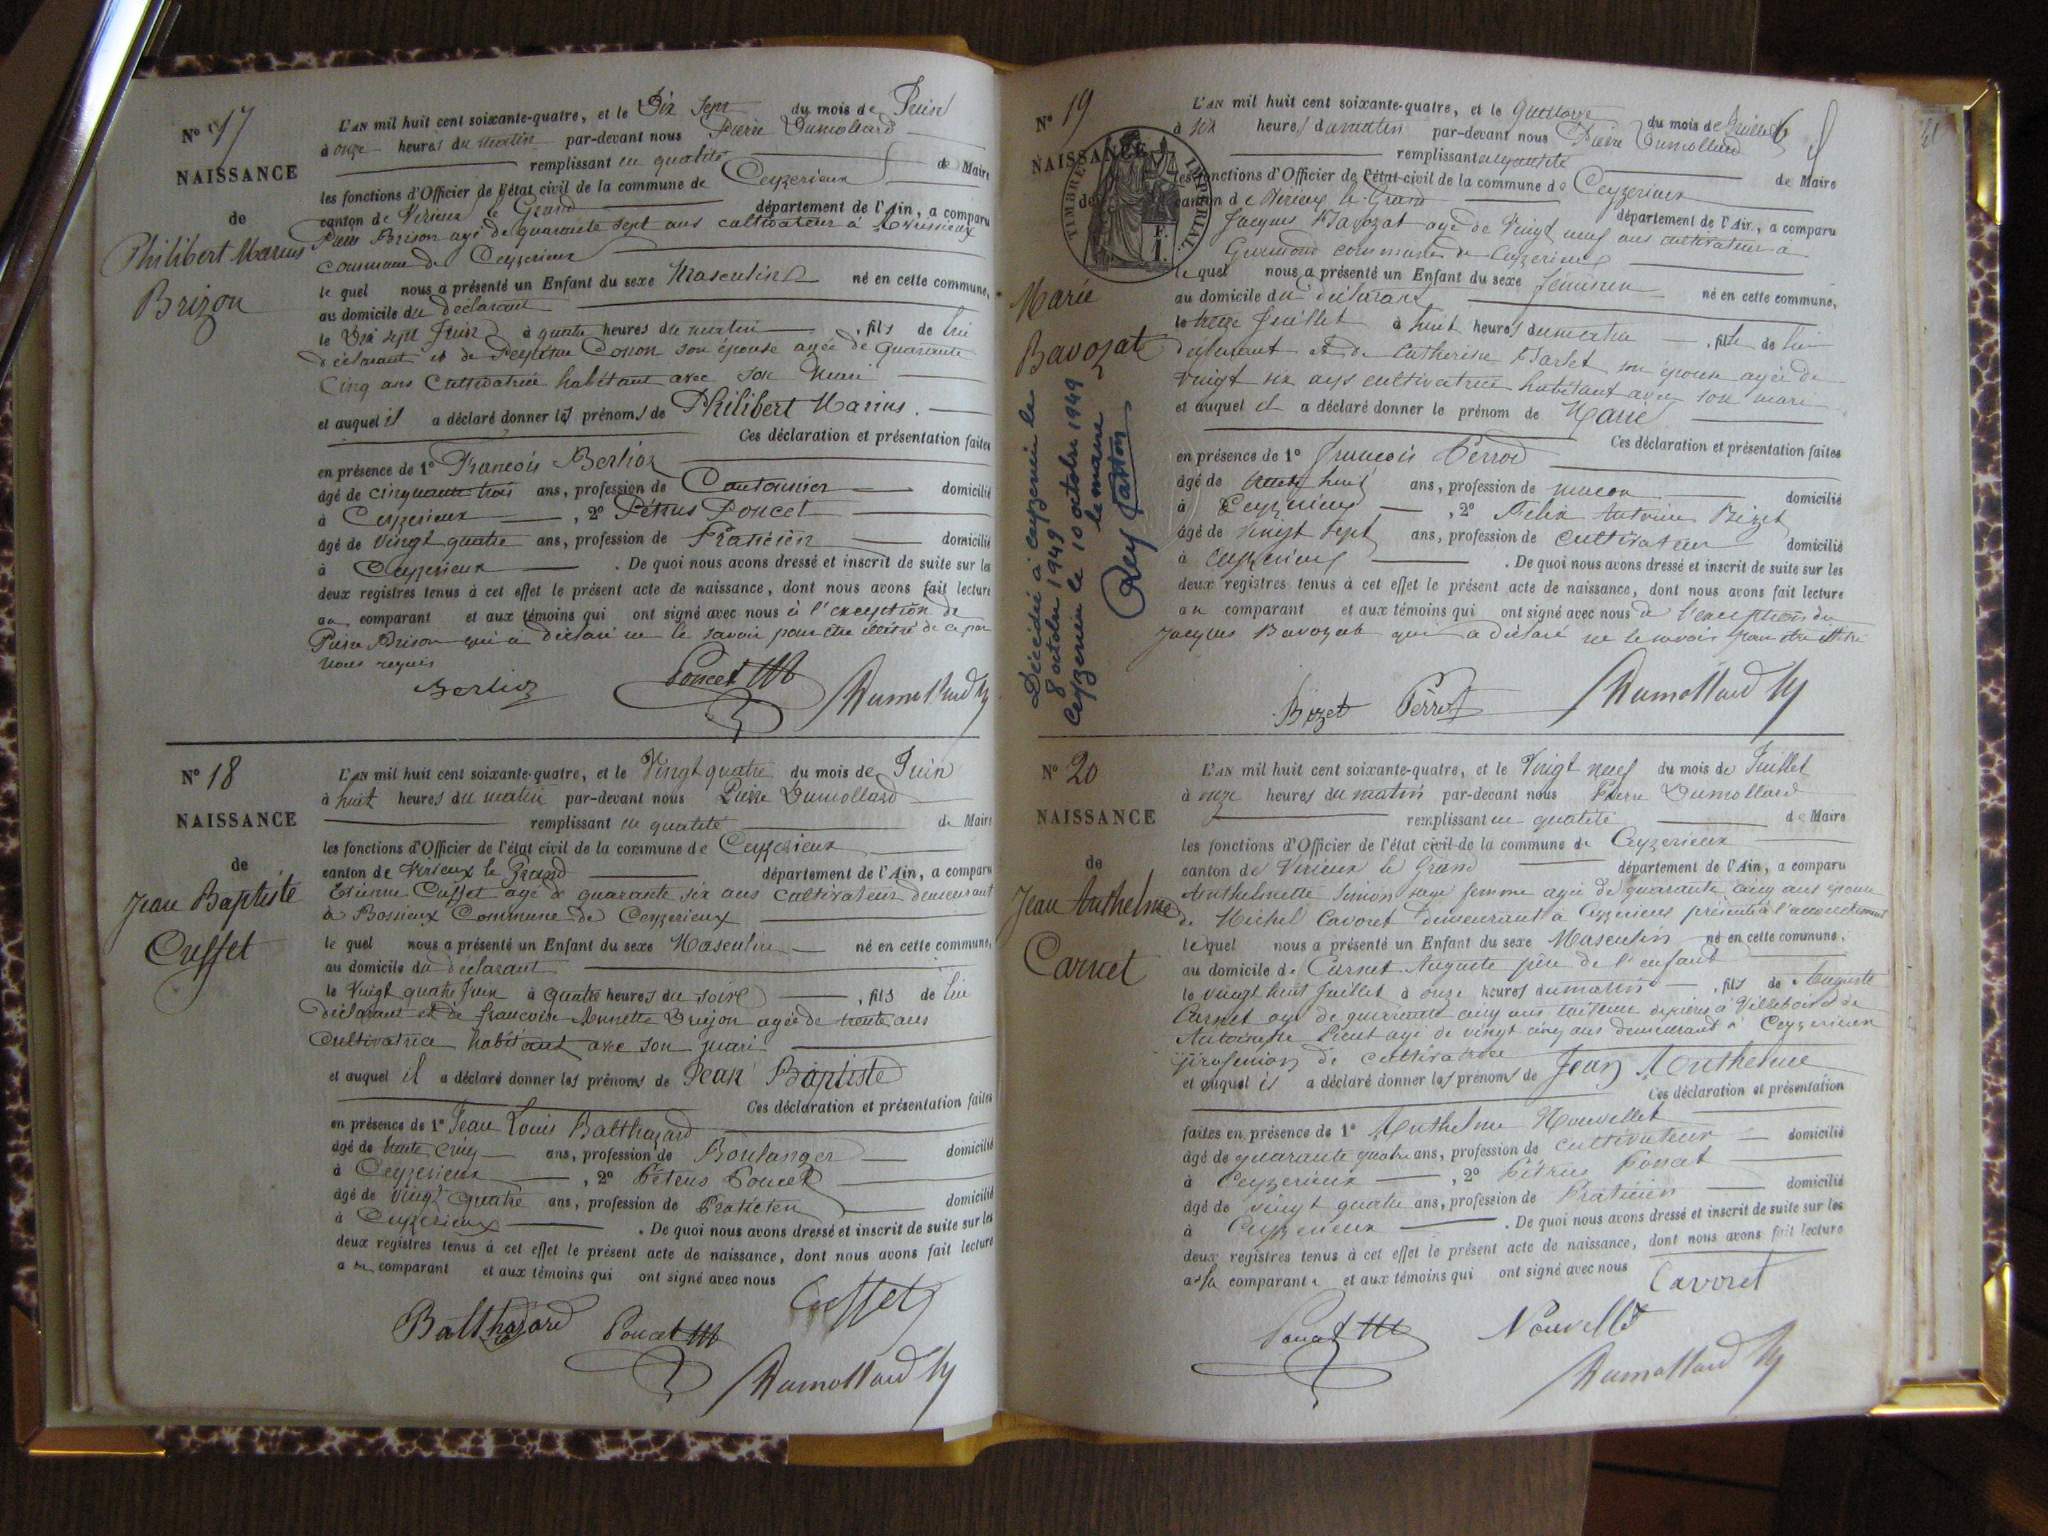 N° 17
NAISSANCE
de
Philibert Marius
Brizon
L'AN mil huit cent soixante-quatre, et le Dix Sept du mois de Juin
à onze heures du matin par-devant nous Pierre Dumollard
remplissant en qualité de Maire
les fonctions d'Officier de l'état civil de la commune de Ceyzerieux
canton de Virieux le Grand département de l'Ain, a comparu
Pierre Brison agé de quarante sept ans cultivateur à
commune de Ceyzerieux
le quel nous a présenté un Enfant du sexe Masculin né en cette commune,
au domicile du déclarant
le Dix sept Juin à quatre heures du matin , fils de lui
déclarant et de son épouse agée de quarante
Cinq ans Cultivatrice habitant avec son mari
et auquel il a déclaré donner les prénoms de Philibert Marius.
Ces déclaration et présentation faites
en présence de 1° François Berlioz
âgé de cinquante trois ans, profession de Cantonnier domicilié
à Ceyzerieux , 2° Pétrus Poncet
âgé de vingt quatre ans, profession de Praticien domicilié
à Ceyzerieux . De quoi nous avons dressé et inscrit de suite sur les
deux registres tenus à cet effet le présent acte de naissance, dont nous avons fait lecture
au comparant et aux témoins qui ont signé avec nous à l'exception de
Pierre Brison qui a déclaré ne le savoir pour être illétré de ce par
nous requis
Berlioz Poncet Dumollard
N° 18
NAISSANCE
de
Jean Baptiste
Cusset
L'AN mil huit cent soixante-quatre, et le Vingt quatre du mois de Juin
à huit heures du matin par-devant nous Pierre Dumollard
remplissant en qualité de Maire
les fonctions d'Officier de l'état civil de la commune de Ceyzerieux
canton de Virieux le Grand département de l'Ain, a comparu
Etienne Cusset agé de quarante six ans cultivateur demeurant
à Bossieux Commune de Ceyzerieux
le quel nous a présenté un Enfant du sexe Masculin né en cette commune,
au domicile du déclarant
le Vingt quatre Juin à quatre heures du soir , fils de lui
déclarant et de françoise Annette Brujon agée de trente ans
Cultivatrice habitant avec son mari
et auquel il a déclaré donner les prénoms de Jean Baptiste
Ces déclaration et présentation faites
en présence de 1° Jean Louis Balthazard
âgé de trente cinq ans, profession de Boulanger domicilié
à Ceyzerieux , 2° Pétrus Poncet
âgé de vingt quatre ans, profession de Praticien domicilié
à Ceyzerieux . De quoi nous avons dressé et inscrit de suite sur les
deux registres tenus à cet effet le présent acte de naissance, dont nous avons fait lecture
au comparant et aux témoins qui ont signé avec nous
Cusset
Balthazard Poncet
Dumollard
N° 19
NAISSANCE
de
TIMBRE IMPERIAL
Marie
Bavozat
Décédée à ceyzerieu le
8 octobre 1949
Ceyzerieu le 10 octobre 1949
le maire
Rey
L'AN mil huit cent soixante-quatre, et le Quatorze du mois de Juillet
à six heures du matin par-devant nous Pierre Dumollard
remplissant en qualité de Maire
les fonctions d'Officier de l'état civil de la commune de Ceyzerieux
canton de Virieux le Grand département de l'Ain, a comparu
Jacques Bavozat agé de Vingt neuf ans cultivateur à
commune de Ceyzerieux
le quel nous a présenté un Enfant du sexe féminin né en cette commune,
au domicile du déclarant
le treize Juillet à huit heures du matin , fille de lui
déclarant et de Catherine Barlet son épouse agée de
vingt six ans cultivatrice habitant avec son mari
et auquel il a déclaré donner le prénom de Marie
Ces déclaration et présentation faites
en présence de 1° François Perrod
âgé de trente huit ans, profession de macon domicilié
à Ceyzerieux , 2° Félix Antoine Bizet
âgé de vingt sept ans, profession de cultivateur domicilié
à Ceyzerieux . De quoi nous avons dressé et inscrit de suite sur les
deux registres tenus à cet effet le présent acte de naissance, dont nous avons fait lecture
au comparant et aux témoins qui ont signé avec nous à l'exception du
Jacques Bavozat qui a déclaré ne le savoir pour être illétré
Bizet Perrod Dumollard
N° 20
NAISSANCE
de
Jean Anthelme
Carnet
L'AN mil huit cent soixante-quatre, et le Vingt neuf du mois de Juillet
à onze heures du matin par-devant nous Pierre Dumollard
remplissant en qualité de Maire
les fonctions d'Officier de l'état civil de la commune de Ceyzerieux
canton de Virieux le Grand département de l'Ain, a comparu
Anthelmette Simon sage femme agée de quarante cinq ans épouse
de Michel Cavoret demeurant à Ceyzerieux présente à l'accouchement
le quel nous a présenté un Enfant du sexe Masculin né en cette commune,
au domicile de Carnet Auguste père de l'enfant
le vingt huit Juillet à onze heures du matin , fils de Auguste
Carnet agé de quarante cinq ans tailleur de pierres à Villebois et de
agé de vingt cinq ans demeurant à Ceyzerieux
profession de cultivatrice
et auquel il a déclaré donner les prénoms de Jean Anthelme
Ces déclaration et présentation
faites en présence de 1° Anthelme Nouvellet
âgé de quarante quatre ans, profession de cultivateur domicilié
à Ceyzerieux , 2° Pétrus Poncet
âgé de vingt quatre ans, profession de Praticien domicilié
à Ceyzerieux . De quoi nous avons dressé et inscrit de suite sur les
deux registres tenus à cet effet le présent acte de naissance, dont nous avons fait lecture
a la comparante et aux témoins qui ont signé avec nous
Cavoret
Poncet Nouvellet
Dumollard